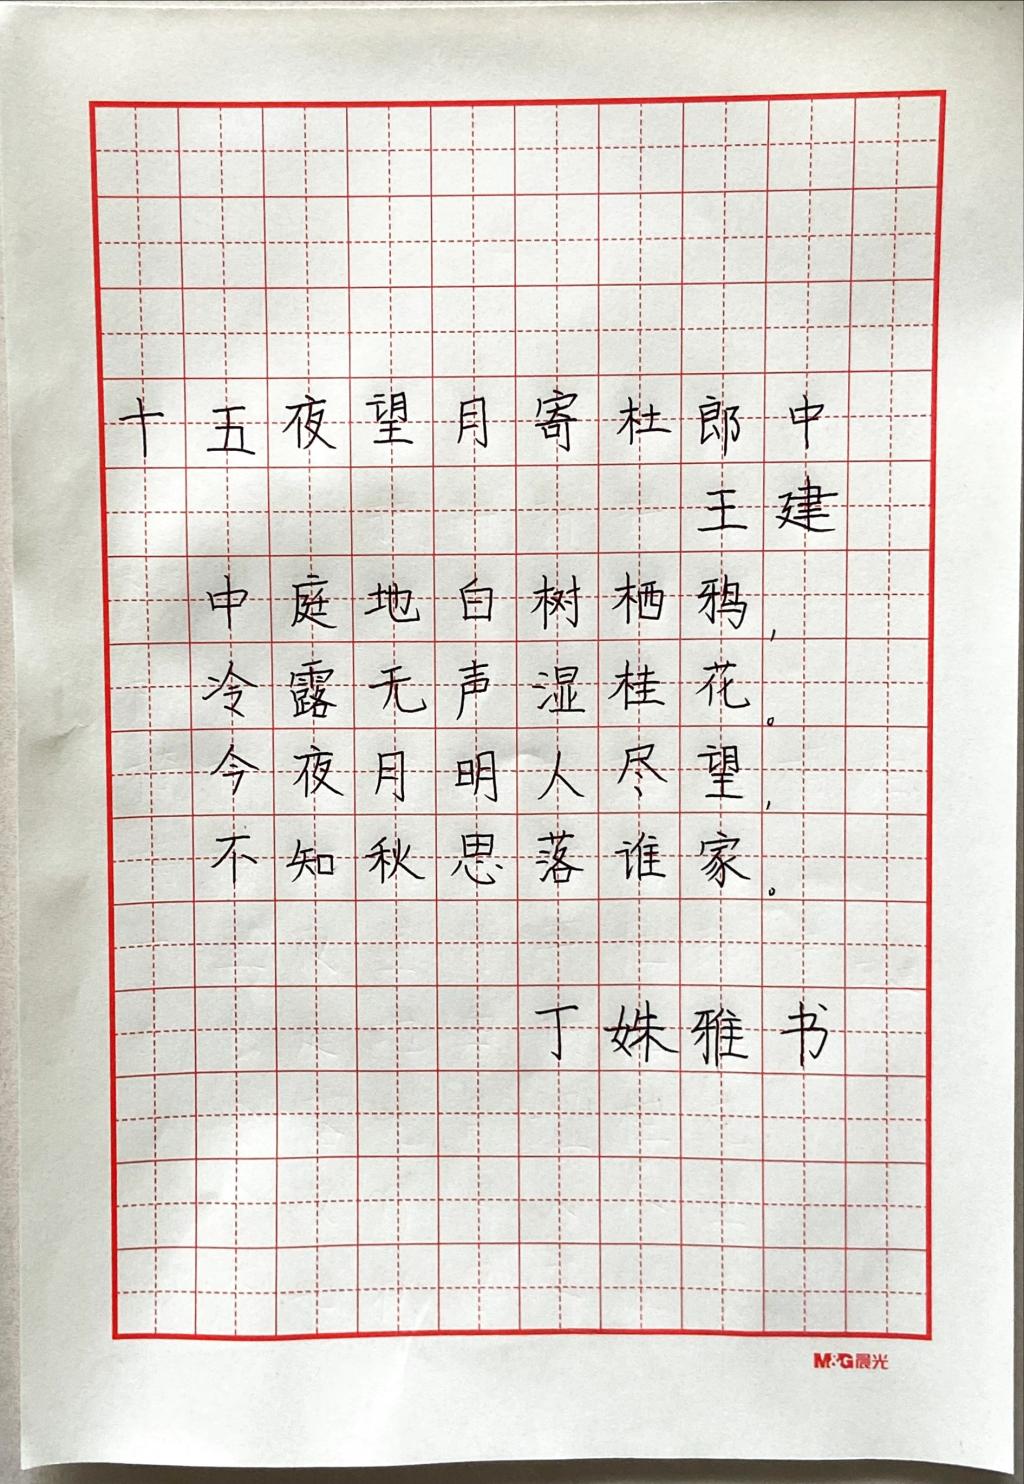 十五夜望月寄杜郎中
王建
中庭地白树栖鸦,
冷露无声湿桂花。
今夜月明人尽望,
不知秋思落谁家。
丁姝雅书
M&G晨光